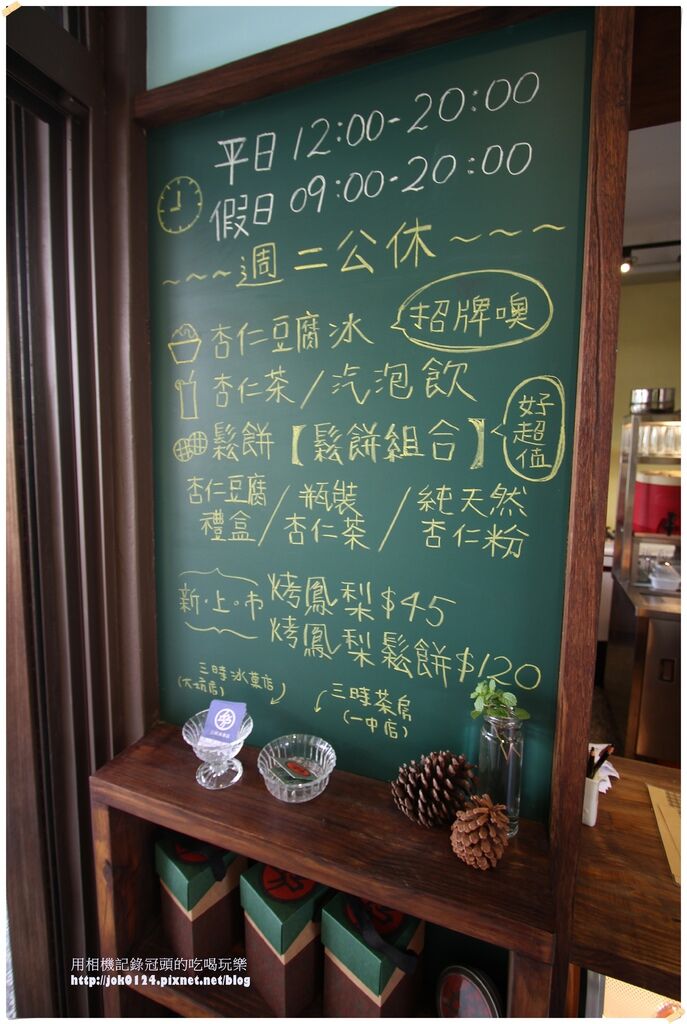 平日 12:00-20:00
假日 09:00-20:00
~~~週二公休~~~
杏仁豆腐冰
招牌噢
杏仁茶/汽泡飲
鬆餅【鬆餅組合】
好超值
杏仁豆腐禮盒/瓶裝杏仁茶/純天然杏仁粉
新.上.市
烤鳳梨$45
烤鳳梨鬆餅$120
三時冰菓店
(大坑店)
三時茶房
(一中店)
用相機記錄冠頭的吃喝玩樂
http://jok0124.pixnet.net/blog